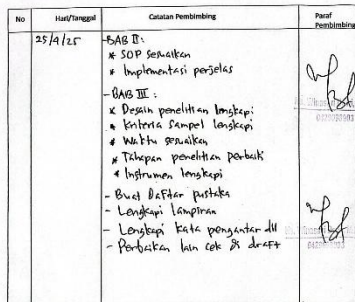 No
Hari/Tanggal
Catatan Pembimbing
Paraf
Pembimbing
25/9/25
- BAB II :
* SOP sesuaikan
* Implementasi perjelas
- BAB III :
* Desain penelitian lengkapi
* Kriteria sampel lengkapi
* Waktu sesuaikan
* Tahapan penelitian perbaiki
* Instrumen lengkapi
- Buat Daftar pustaka
- Lengkapi lampiran
- Lengkapi kata pengantar dll
- Perbaikan lain cek di draft